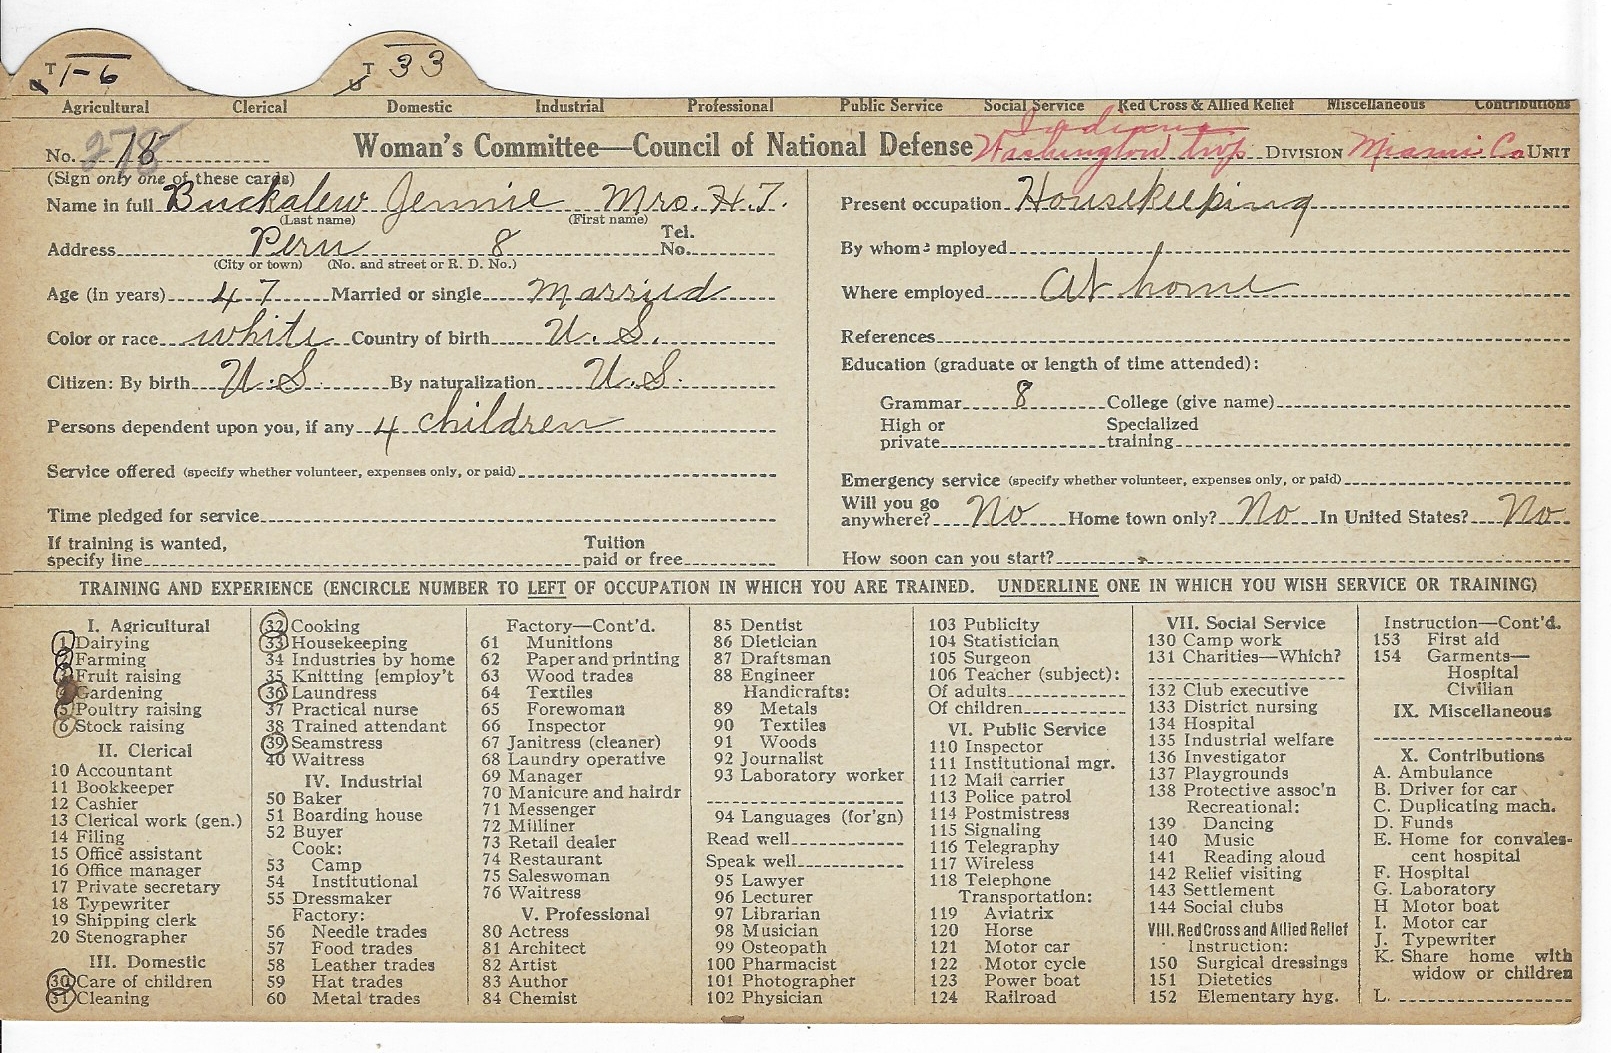 T 1-6 T 33
Agricultural Clerical Domestic Industrial Professional Public Service Social Service Red Cross & Allied Relief Miscellaneous Contributions
Indiana
No. 278 18 Woman's Committee—Council of National Defense Washington Twp. DIVISION Miami Co. UNIT
(Sign only one of these cards)
Name in full Buckalew Jennie Mrs. H.T.
(Last name) (First name)
Address Peru 8 Tel. No.
(City or town) (No. and street or R. D. No.)
Age (in years) 47 Married or single Married
Color or race white Country of birth U. S.
Citizen: By birth U.S. By naturalization U.S.
Persons dependent upon you, if any 4 children
Service offered (specify whether volunteer, expenses only, or paid)
Time pledged for service
If training is wanted, specify line Tuition paid or free
Present occupation Housekeeping
By whom employed
Where employed At home
References
Education (graduate or length of time attended):
Grammar 8 College (give name)
High or private Specialized training
Emergency service (specify whether volunteer, expenses only, or paid)
Will you go anywhere? No Home town only? No In United States? No
How soon can you start?
TRAINING AND EXPERIENCE (ENCIRCLE NUMBER TO LEFT OF OCCUPATION IN WHICH YOU ARE TRAINED. UNDERLINE ONE IN WHICH YOU WISH SERVICE OR TRAINING)
I. Agricultural
1 Dairying
2 Farming
3 Fruit raising
4 Gardening
5 Poultry raising
6 Stock raising
II. Clerical
10 Accountant
11 Bookkeeper
12 Cashier
13 Clerical work (gen.)
14 Filing
15 Office assistant
16 Office manager
17 Private secretary
18 Typewriter
19 Shipping clerk
20 Stenographer
III. Domestic
30 Care of children
31 Cleaning
32 Cooking
33 Housekeeping
34 Industries by home
35 Knitting [employ't
36 Laundress
37 Practical nurse
38 Trained attendant
39 Seamstress
40 Waitress
IV. Industrial
50 Baker
51 Boarding house
52 Buyer
Cook:
53 Camp
54 Institutional
55 Dressmaker
Factory:
56 Needle trades
57 Food trades
58 Leather trades
59 Hat trades
60 Metal trades
Factory—Cont'd.
61 Munitions
62 Paper and printing
63 Wood trades
64 Textiles
65 Forewoman
66 Inspector
67 Janitress (cleaner)
68 Laundry operative
69 Manager
70 Manicure and hairdr
71 Messenger
72 Milliner
73 Retail dealer
74 Restaurant
75 Saleswoman
76 Waitress
V. Professional
80 Actress
81 Architect
82 Artist
83 Author
84 Chemist
85 Dentist
86 Dietician
87 Draftsman
88 Engineer
Handicrafts:
89 Metals
90 Textiles
91 Woods
92 Journalist
93 Laboratory worker
94 Languages (for'gn)
Read well
Speak well
95 Lawyer
96 Lecturer
97 Librarian
98 Musician
99 Osteopath
100 Pharmacist
101 Photographer
102 Physician
103 Publicity
104 Statistician
105 Surgeon
106 Teacher (subject):
Of adults
Of children
VI. Public Service
110 Inspector
111 Institutional mgr.
112 Mail carrier
113 Police patrol
114 Postmistress
115 Signaling
116 Telegraphy
117 Wireless
118 Telephone
Transportation:
119 Aviatrix
120 Horse
121 Motor car
122 Motor cycle
123 Power boat
124 Railroad
VII. Social Service
130 Camp work
131 Charities—Which?
132 Club executive
133 District nursing
134 Hospital
135 Industrial welfare
136 Investigator
137 Playgrounds
138 Protective assoc'n
Recreational:
139 Dancing
140 Music
141 Reading aloud
142 Relief visiting
143 Settlement
144 Social clubs
VIII. Red Cross and Allied Relief
Instruction:
150 Surgical dressings
151 Dietetics
152 Elementary hyg.
Instruction—Cont'd.
153 First aid
154 Garments—
Hospital
Civilian
IX. Miscellaneous
X. Contributions
A. Ambulance
B. Driver for car
C. Duplicating mach.
D. Funds
E. Home for convales-
cent hospital
F. Hospital
G. Laboratory
H Motor boat
I. Motor car
J. Typewriter
K. Share home with
widow or children
L.